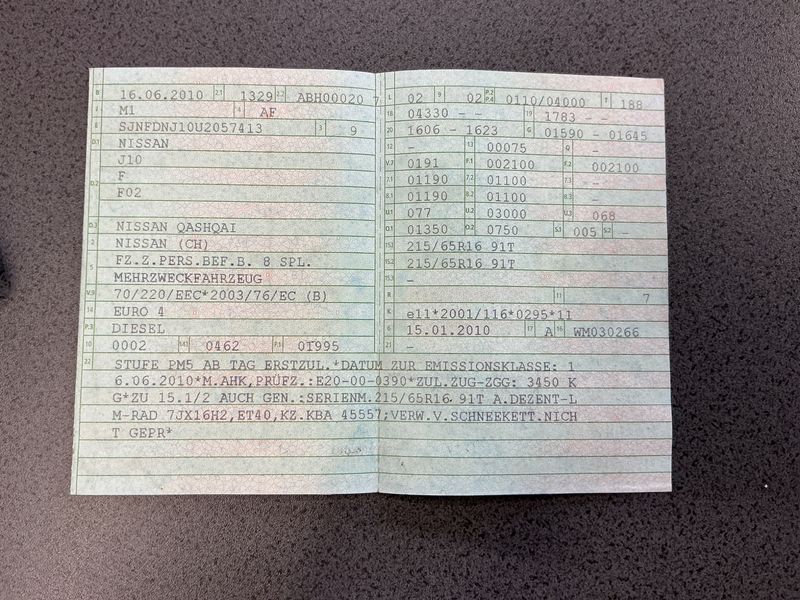 B 16.06.2010 2.1 1329 2.2 ABH00020 7
J M1 4 AF
E SJNFDNJ10U2057413 3 9
D.1 NISSAN
J10
D.2 F
F02
D.3 NISSAN QASHQAI
2 NISSAN (CH)
5 FZ.Z.PERS.BEF.B. 8 SPL.
MEHRZWECKFAHRZEUG
V.9 70/220/EEC*2003/76/EC (B)
14 EURO 4
P.3 DIESEL
10 0002 14.1 0462 P.1 01995
L 02 9 02 P.2 P.4 0110/04000 T 188
18 04330 - - 19 1783 - -
20 1606 - 1623 G 01590 - 01645
12 - 13 00075 Q -
V.7 0191 F.1 002100 F.2 002100
7.1 01190 7.2 01100 7.3 -
8.1 01190 8.2 01100 8.3 -
U.1 077 U.2 03000 U.3 068
O.1 01350 O.2 0750 S.1 005 S.2 -
15.1 215/65R16 91T
15.2 215/65R16 91T
15.3 -
R 11 7
K e11*2001/116*0295*11
6 15.01.2010 17 A 16 WM030266
21 -
22 STUFE PM5 AB TAG ERSTZUL.*DATUM ZUR EMISSIONSKLASSE: 1
6.06.2010*M.AHK,PRÜFZ.:E20-00-0390*ZUL.ZUG-ZGG: 3450 K
G*ZU 15.1/2 AUCH GEN.:SERIENM.215/65R16 91T A.DEZENT-L
M-RAD 7JX16H2,ET40,KZ.KBA 45557;VERW.V.SCHNEEKETT.NICH
T GEPR*